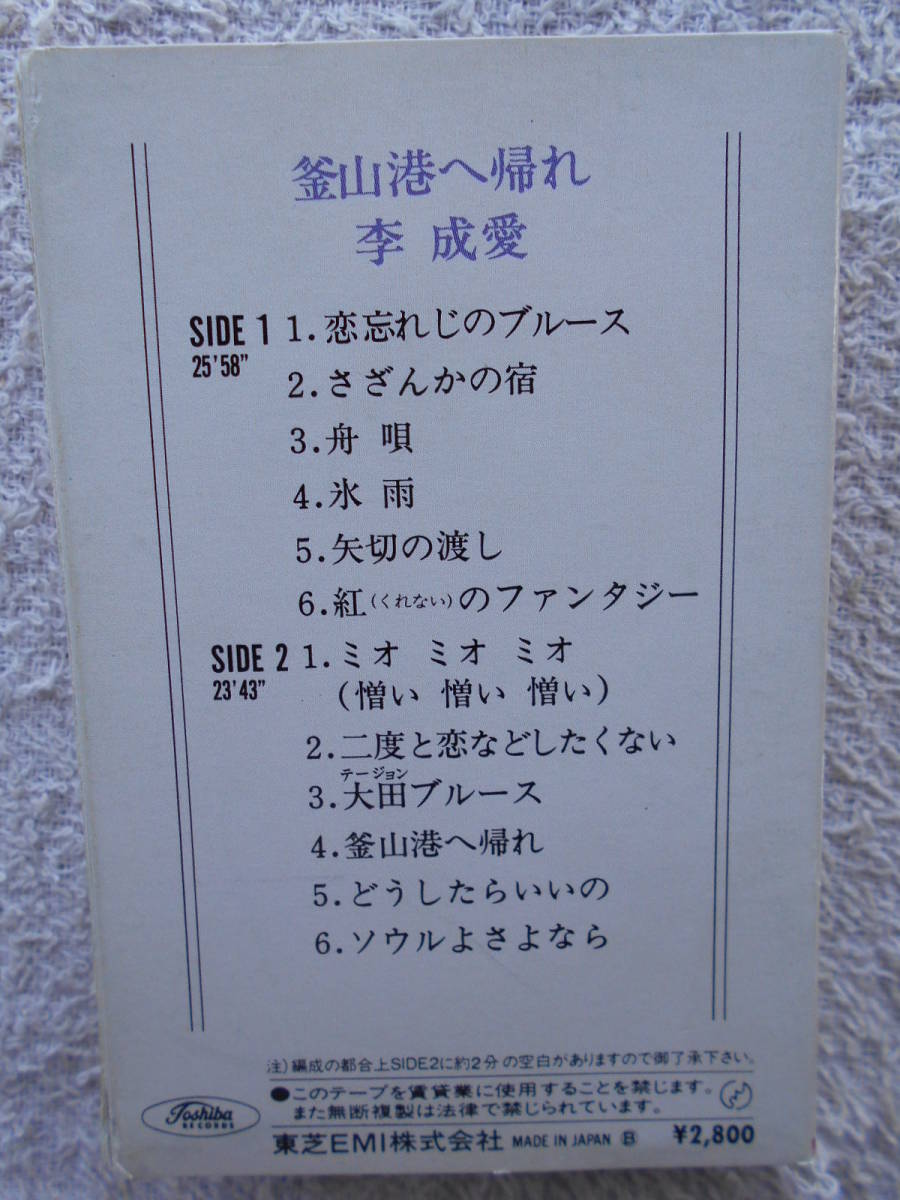 釜山港へ帰れ
李 成愛
SIDE 1 1.恋忘れじのブルース
25'58"
2.さざんかの宿
3.舟 唄
4.氷 雨
5.矢切の渡し
6.紅(くれない)のファンタジー
SIDE 2 1.ミオ ミオ ミオ
23'43"
(憎い 憎い 憎い)
2.二度と恋などしたくない
テージョン
3.大田ブルース
4.釜山港へ帰れ
5.どうしたらいいの
6.ソウルよさよなら
注)編成の都合上SIDE2に約2分の空白がありますので御了承下さい。
●このテープを賃貸業に使用することを禁じます。
また無断複製は法律で禁じられています。
Toshiba
RECORDS
東芝EMI株式会社 MADE IN JAPAN Ⓑ ¥2,800